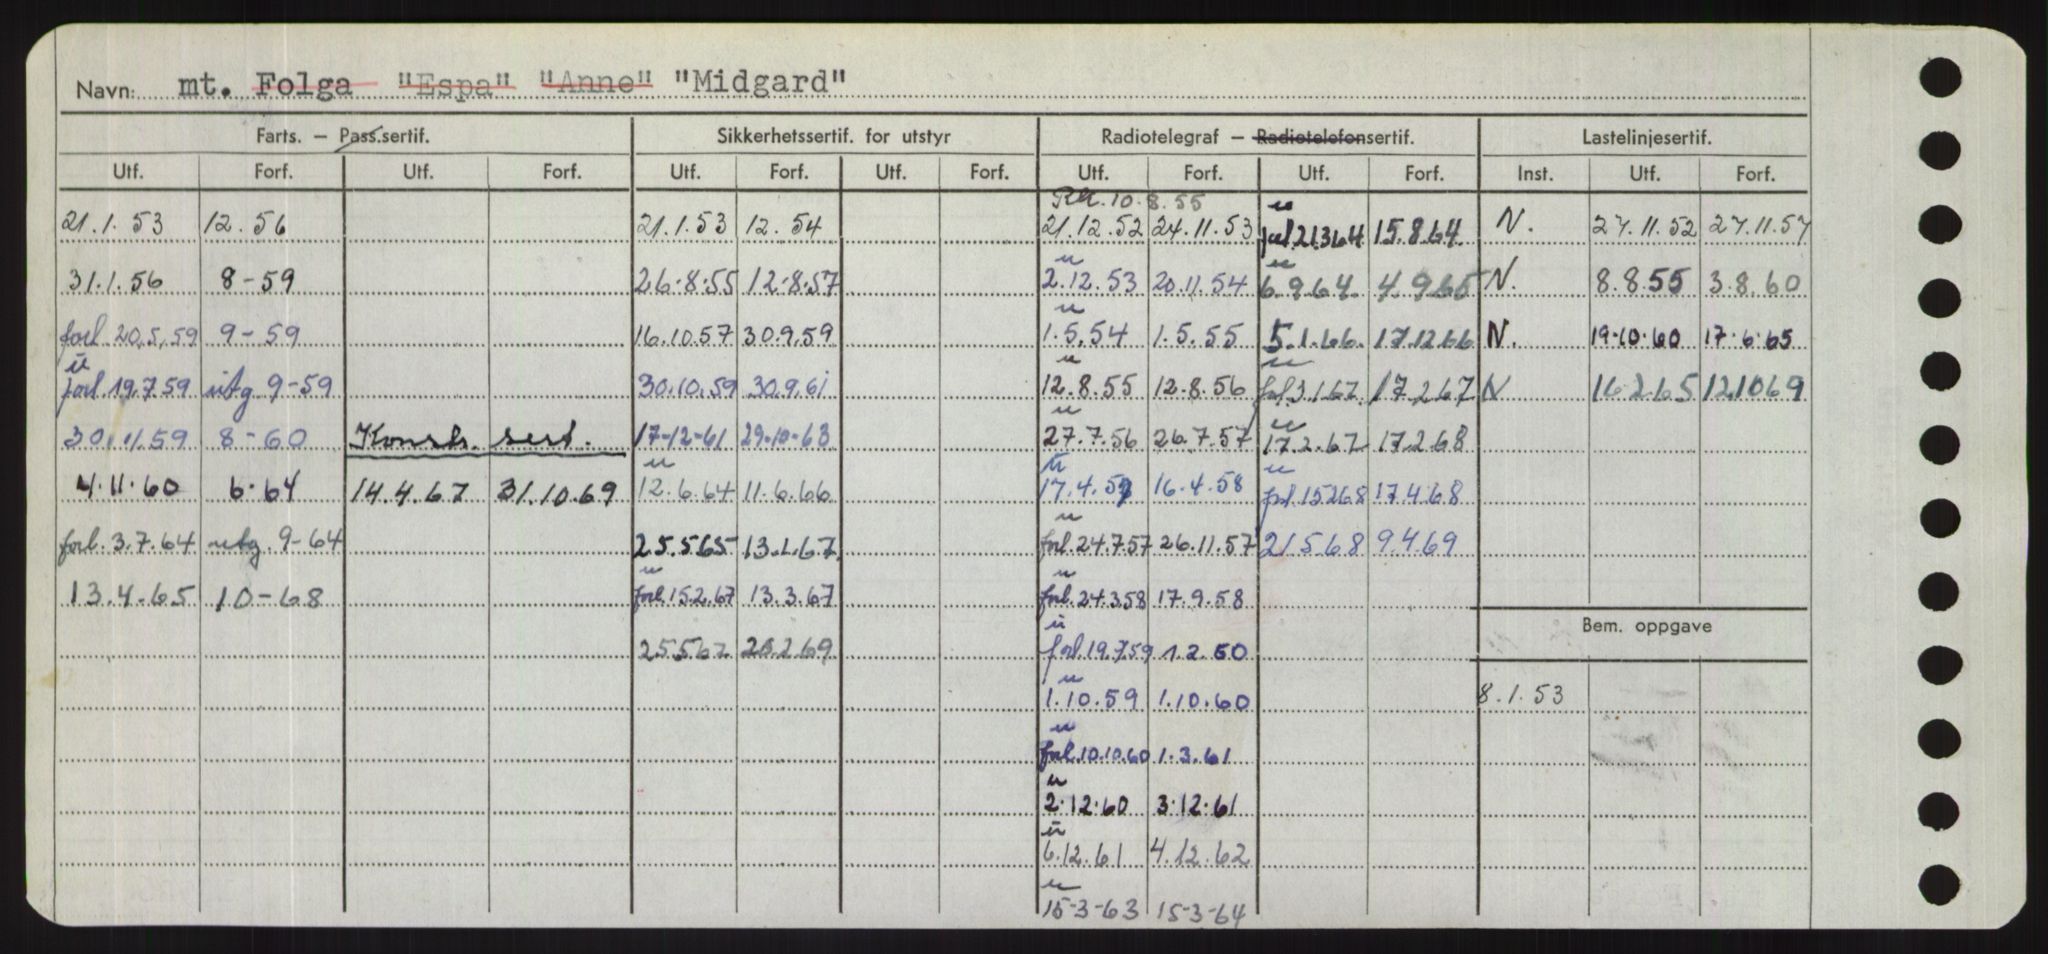 Navn: mt. Folga "Espa" "Anne" "Midgard"
Farts. — Pass.sertif. Sikkerhetssertif. for utstyr Radiotelegraf — Radiotelefonsertif. Lastelinjesertif.
Utf. Forf. Utf. Forf. Utf. Forf. Utf. Forf. Utf. Forf. Utf. Forf. Inst. Utf. Forf.
10.8.55 u
21.1.53 12.56 21.1.53 12.54 21.12.52 24.11.53 21364 15.8.64. N. 27.11.52 27.11.57
u u
31.1.56 8-59 26.8.55 12.8.57 2.12.53 20.11.54 6.9.64. 4.9.65 N. 8.8.55 3.8.60
u
forl. 20.5.59 9-59 16.10.57 30.9.59 1.5.54 1.5.55 5.1.66. 17.12.66 N. 19.10.60 17.6.65
u u u
forl. 19.7.59 utg. 9-59 30.10.59 30.9.61 12.8.55 12.8.56 forl. 3.1.67. 17.2.67 N 16.2.65 12.10.69
u u
30.11.59 8-60 Konstr. sert. 17-12-61 29-10-63 27.7.56 26.7.57 17.2.67 17.2.68
u u u
4.11.60 6.64 14.4.67 31.10.69 12.6.64 11.6.66 17.4.57 16.4.58 forl. 15268 17.4.68
u
forl. 3.7.64 utg. 9-64 25.5.65 13.1.67. forl. 24.7.57 26.11.57 21568 9.4.69
u u
13.4.65 10-68 forl. 15.2.67 13.3.67 forl. 24.3.58 17.9.58
Bem. oppgave
u
25.5.67 28.2.69 forl. 19.7.59 1.2.60
u
1.10.59 1.10.60 8.1.53
u
forl. 10.10.60 1.3.61
u
2.12.60 3.12.61
u
6.12.61 4.12.62
u
15-3-63 15-3-64